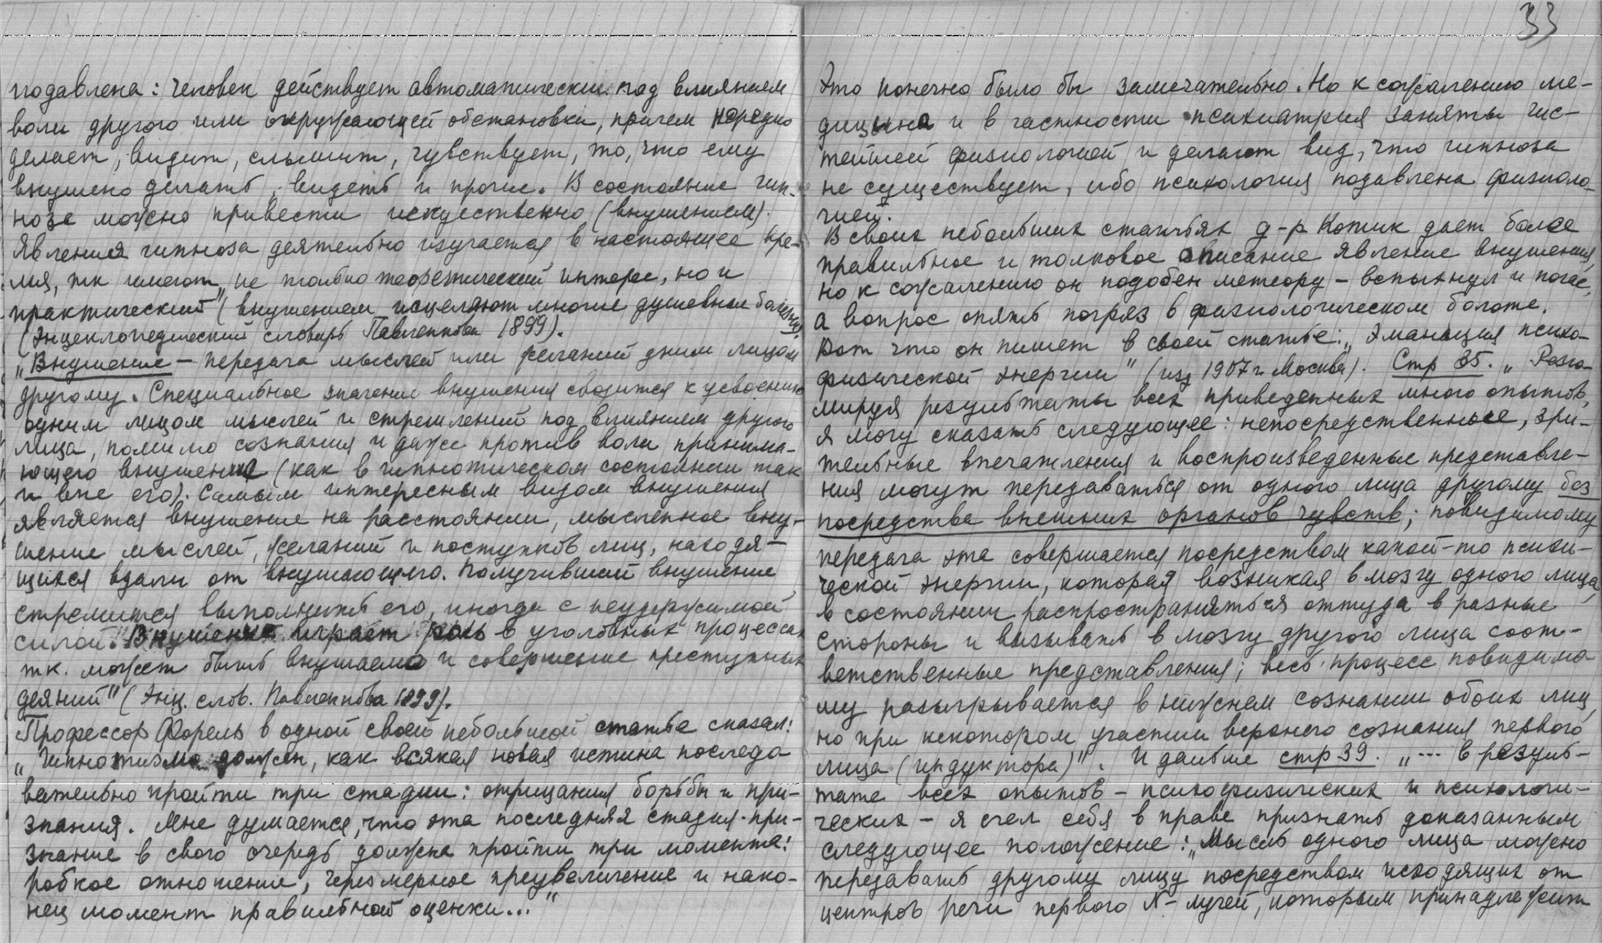 подавлена: человек действует автоматически под влиянием
воли другого или окружающей обстановки, причем нередко
делает, видит, слышит, чувствует, то, что ему
внушено делать, видеть и прочие. В состояние гип-
ноза можно привести искуственно (внушением).
Явления гипноза деятельно изучается в настоящее вре-
мя, тк имеют не только теоретический интерес, но и
практический" (внушением исцеляют многие душевные болезни)
(Энциклопедический словарь Павленкова 1899).
„Внушение – передача мыслей или желаний одним лицом
другому. Специальное значение внушения сводится к усвоению
одним лицом мыслей и стремлений под влиянием другого
лица, помимо сознания и даже против воли принима-
ющего внушение (как в гипнотическом состоянии так
и вне его). Самым интересным видом внушения
является внушение на расстоянии, мысленное вну-
шение мыслей, желаний и поступков лиц, находя-
щихся вдали от внушающего. Получивший внушение
стремится выполнить его, иногда с неудержимой
силой. Внушение играет роль в уголовных процессах
тк. может быть внушаемо и совершение преступных
деяний" (Энц. слов. Павленкова 1899).
Профессор Форель в одной своей небольшой статье сказал:
„Гипнотизм должен, как всякая новая истина последо
вательно пройти три стадии: отрицания борьбы и при-
знания. Мне думается, что эта последняя стадия при-
знание в свою очередь должна пройти три момента:
робкое отношение, черезмерное преувеличение и нако-
нец момент правильной оценки..."
33
Это конечно было бы замечательно. Но к сожалению ме-
дицина и в частности психиатрия заняты чис-
тейшей физиологией и делают вид, что гипноза
не существует, ибо психология подавлена физиоло-
гией.
В своих небольших статьях д-р Котик дает более
правильное и толковое описание явление внушения,
но к сожалению он подобен метеору – вспыхнул и погас,
а вопрос опять погряз в физиологическом болоте.
Вот что он пишет в своей статье: „Эманация психо-
физической энергии" (изд 1907 г Москва). Стр 35. „Резю-
мируя результаты всех приведенных много опытов,
я могу сказать следующее: непосредственные, зри-
тельные впечатления и воспроизведенные представле-
ния могут передаваться от одного лица другому без
посредства внешних органов чувств; повидимому
передача эта совершается посредством какой-то психи-
ческой энергии, которая возникая в мозгу одного лица,
в состоянии распространяться оттуда в разные
стороны и вызывать в мозгу другого лица соот-
ветственные представления; весь процесс повидимо
му разыгрывается в нижнем сознании обоих лиц,
но при некотором участии верхнего сознания первого
лица (индуктора)". И дальше стр 39. „... в резуль-
тате всех опытов – психофизических и психологи-
ческих – я счел себя в праве признать доказанным
следующее положение: „Мысль одного лица можно
передавать другому лицу посредством исходящих от
центров речи первого N – лучей, которым принадлежит